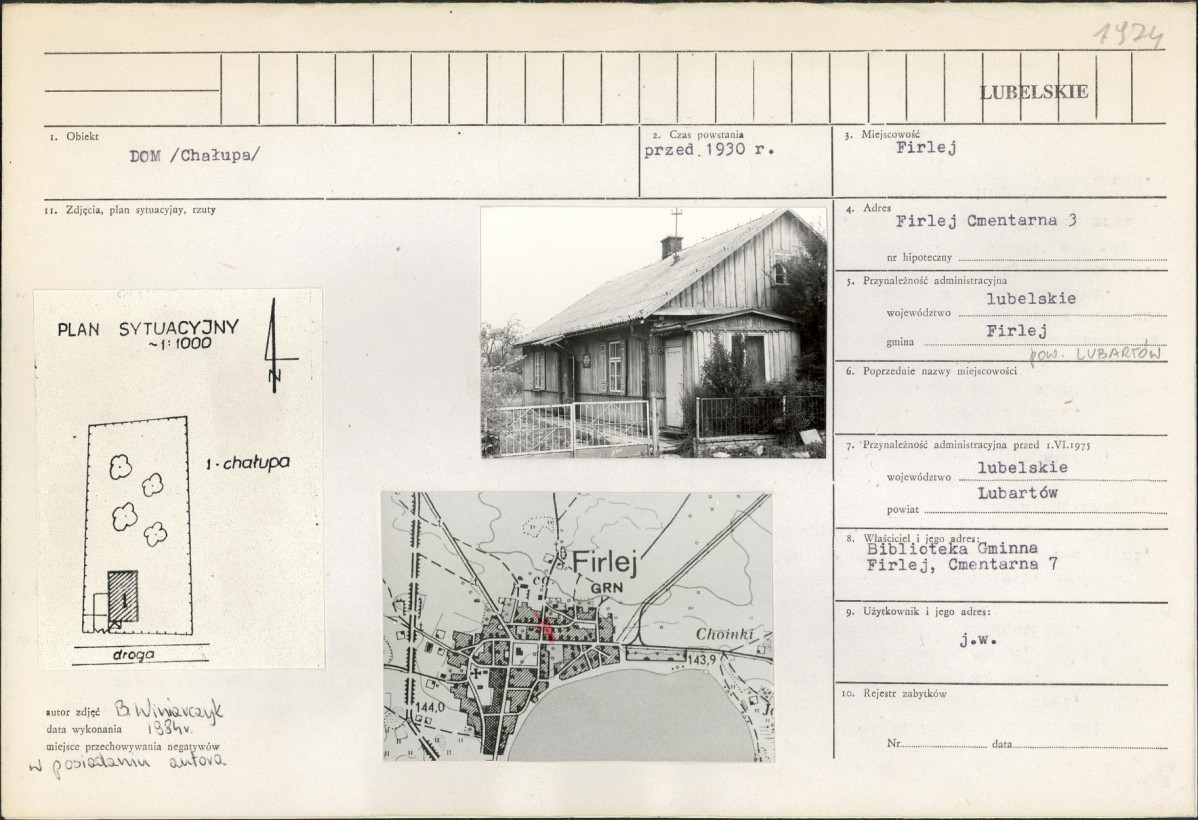 1924
LUBELSKIE
1. Obiekt
DOM /Chałupa/
2. Czas powstania
przed 1930 r.
3. Miejscowość
Firlej
11. Zdjęcia, plan sytuacyjny, rzuty
4. Adres
Firlej Cmentarna 3
nr hipoteczny
5. Przynależność administracyjna
województwo lubelskie
gmina Firlej
pow. LUBARTÓW
6. Poprzednie nazwy miejscowości
7. Przynależność administracyjna przed 1.VI.1975
województwo lubelskie
powiat Lubartów
8. Właściciel i jego adres:
Biblioteka Gminna
Firlej, Cmentarna 7
9. Użytkownik i jego adres:
j.w.
10. Rejestr zabytków
Nr data
PLAN SYTUACYJNY
~1:1000
N
1 - chałupa
1
droga
Firlej
GRN
Choinki
143,9
144,0
autor zdjęć B. Winiarczyk
data wykonania 1984r.
miejsce przechowywania negatywów
w posiadaniu autora